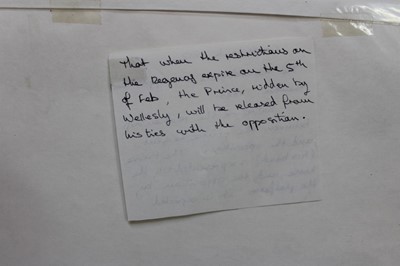 That when the restrictions on
the Regency expire on the 5th
of Feb, the Prince, ridden by
Wellesly, will be released from
his ties with the opposition.